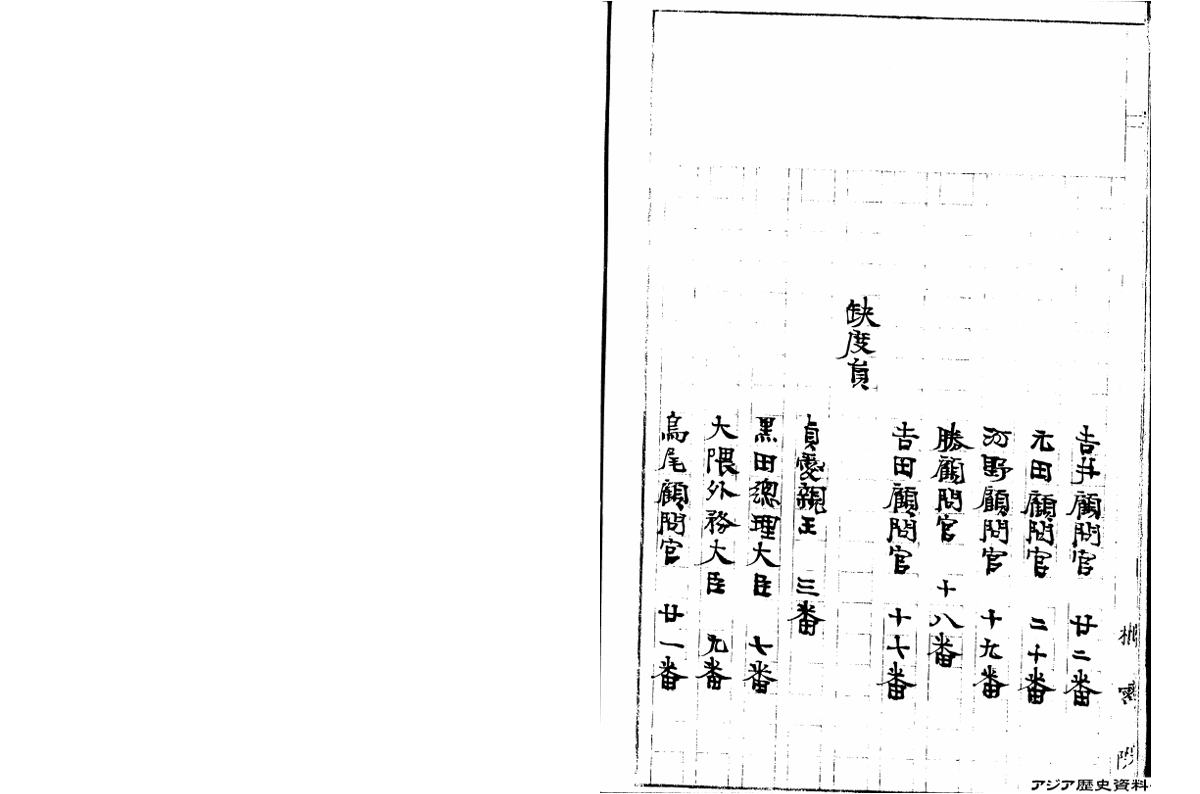 吉井顧問官 廿二番
元田顧問官 二十番
河野顧問官 十九番
勝顧問官 十八番
吉田顧問官 十七番
缺席員
貞愛親王 三番
黒田總理大臣 七番
大隈外務大臣 九番
鳥尾顧問官 廿一番
樞密院
アジア歴史資料